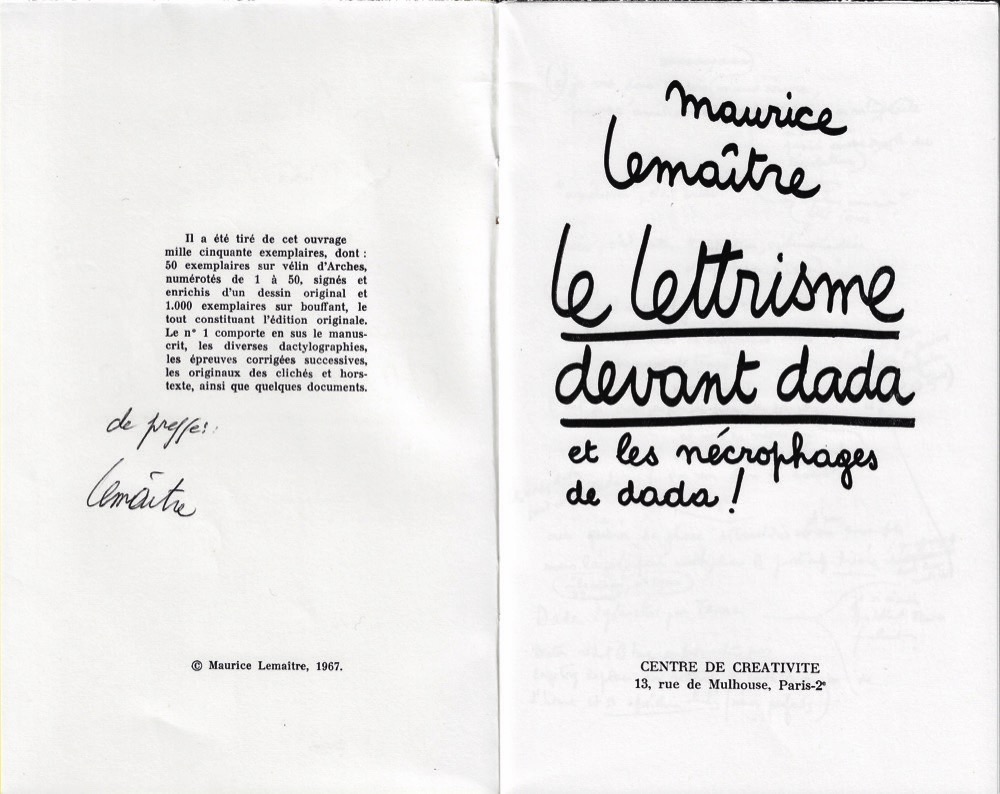 Il a été tiré de cet ouvrage
mille cinquante exemplaires, dont :
50 exemplaires sur vélin d'Arches,
numérotés de 1 à 50, signés et
enrichis d'un dessin original et
1.000 exemplaires sur bouffant, le
tout constituant l'édition originale.
Le n° 1 comporte en sus le manus-
crit, les diverses dactylographies,
les épreuves corrigées successives,
les originaux des clichés et hors-
texte, ainsi que quelques documents.
de presse
Lemaître
© Maurice Lemaître, 1967.
maurice
Lemaître
le lettrisme
devant dada
et les nécrophages
de dada !
CENTRE DE CREATIVITE
13, rue de Mulhouse, Paris-2e